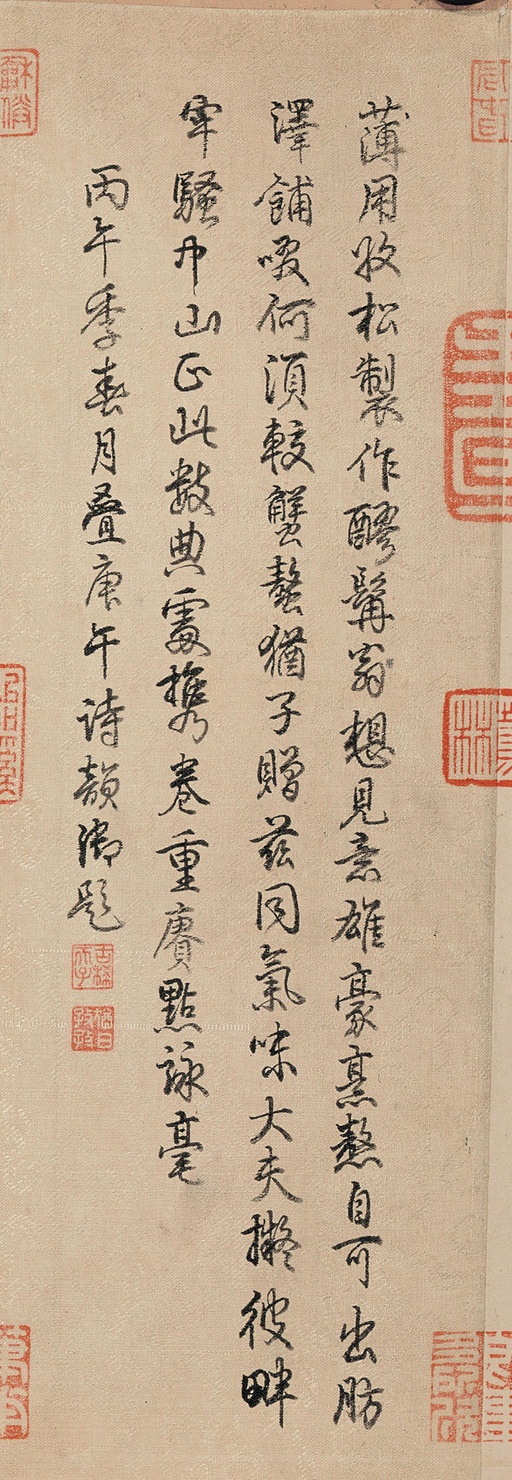 薄用收松製作醪髯翁想見意雄豪烹熬自可出肪
澤餔啜何湏較蟹螯猶子贈茲同氣味大夫擬彼畔
牢騷中山正此數典處攜卷重賡點詠毫
丙午季春月疊庚午詩韻御題
古稀天子
猶日孜孜